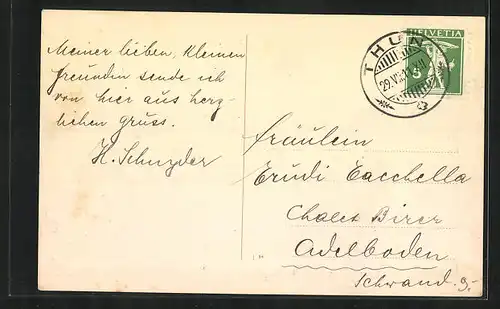 Meiner lieben, kleinen
Freundin sende ich
von hier aus herz-
lichen Gruss.
H. Schnyder
HELVETIA
5
THUN
29.VI.
Fräulein
Erudi Cacchella
Chalet Birer
Adelboden
Schwand.